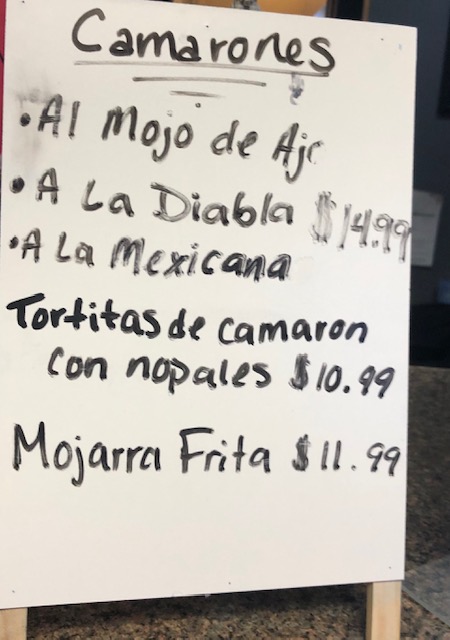 Camarones
• Al Mojo de Ajo
• A La Diabla $14.99
• A La Mexicana
Tortitas de camaron
con nopales $10.99
Mojarra Frita $11.99